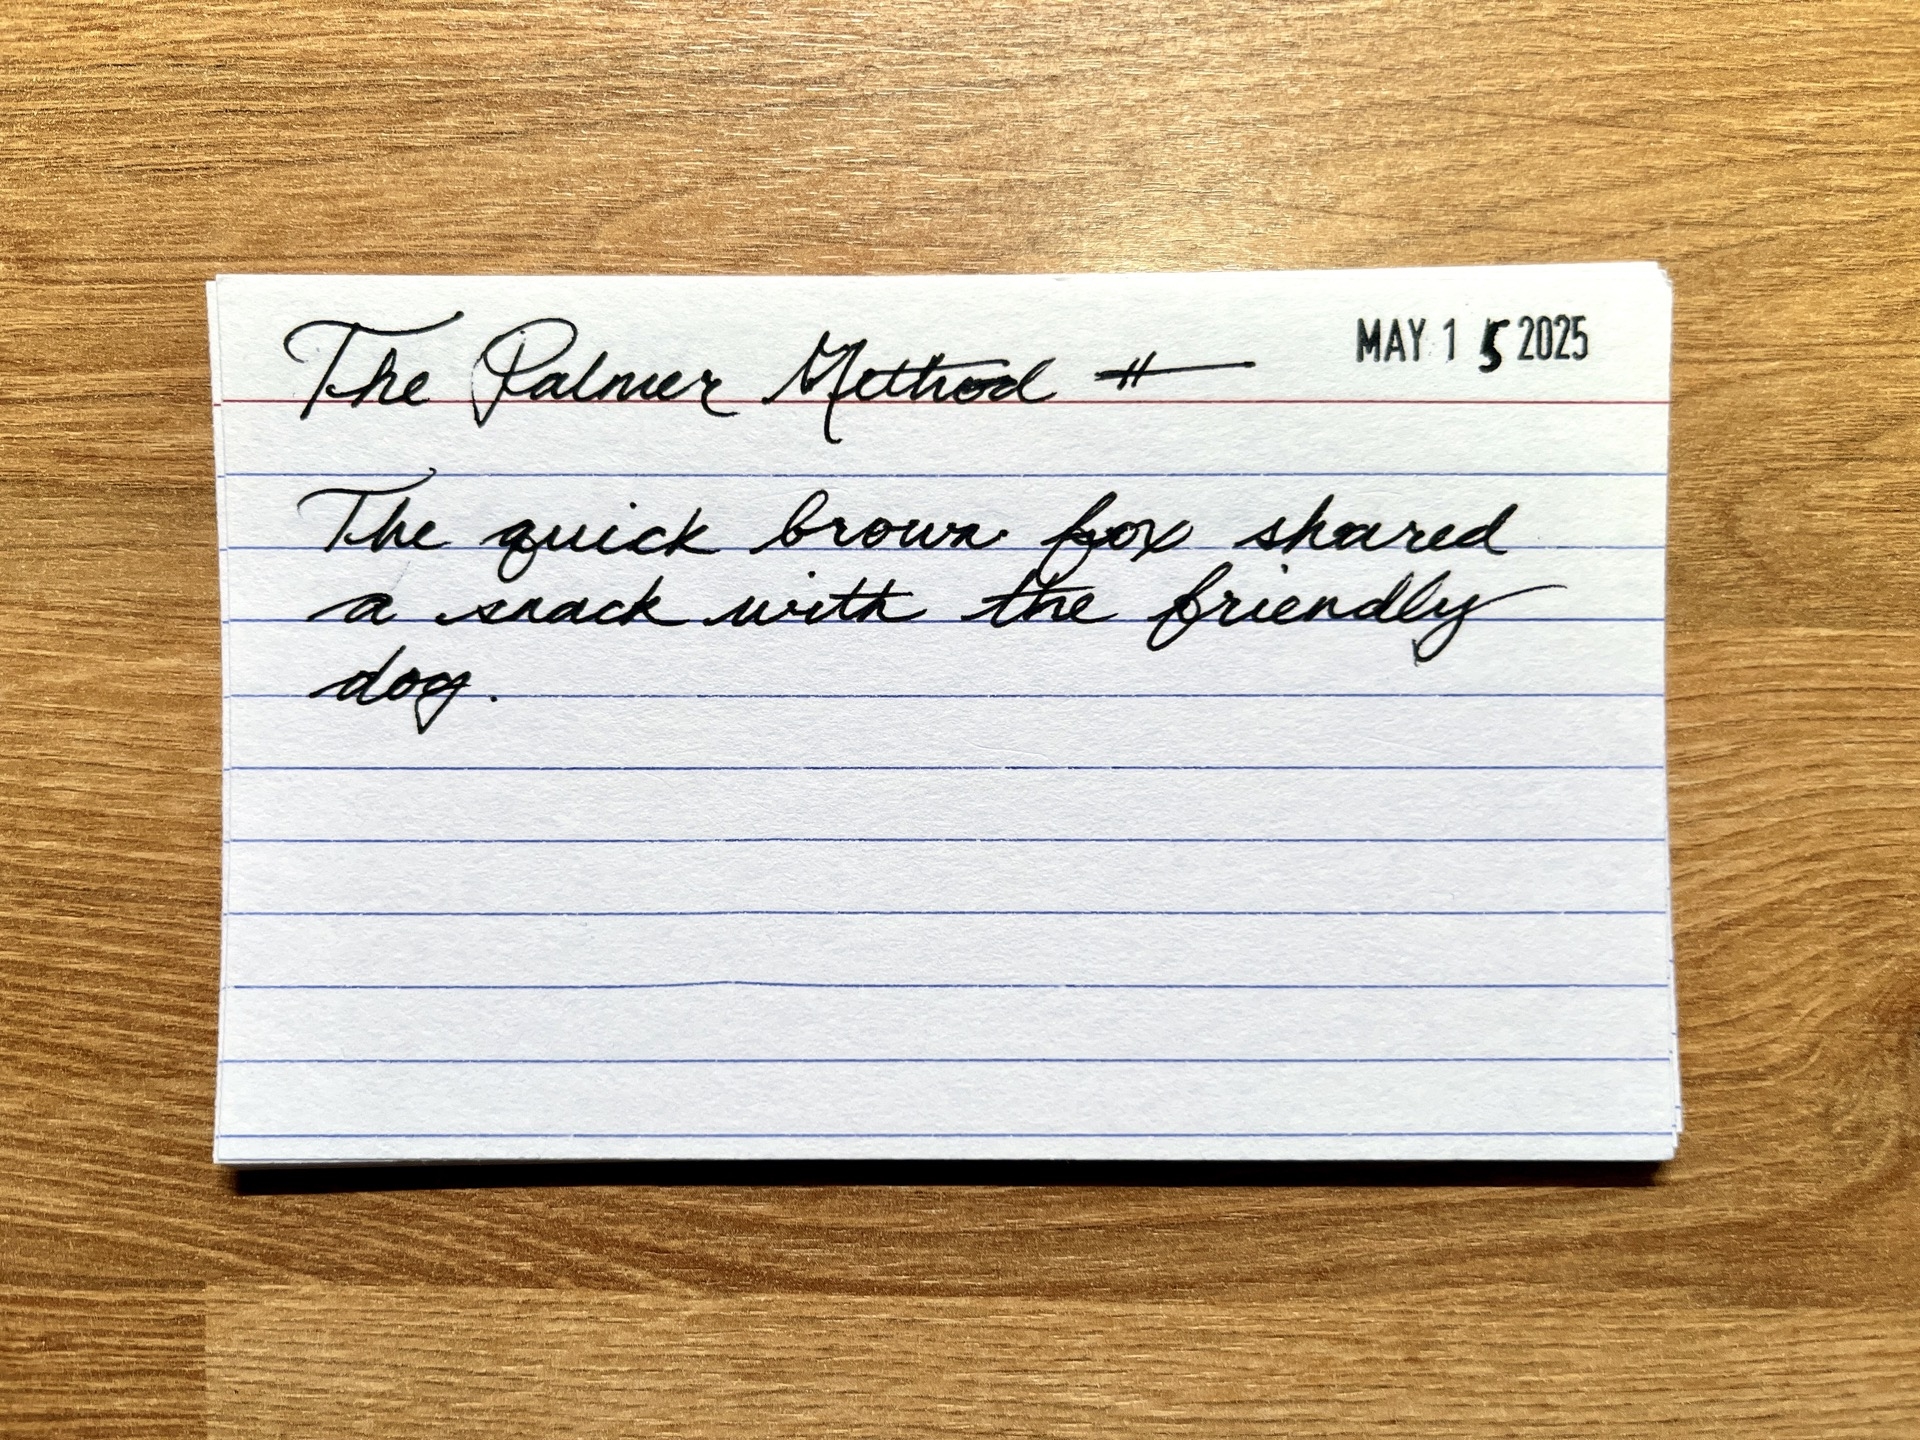 The Palmer Method
MAY 15 2025
The quick brown fox shared
a snack with the friendly
dog.